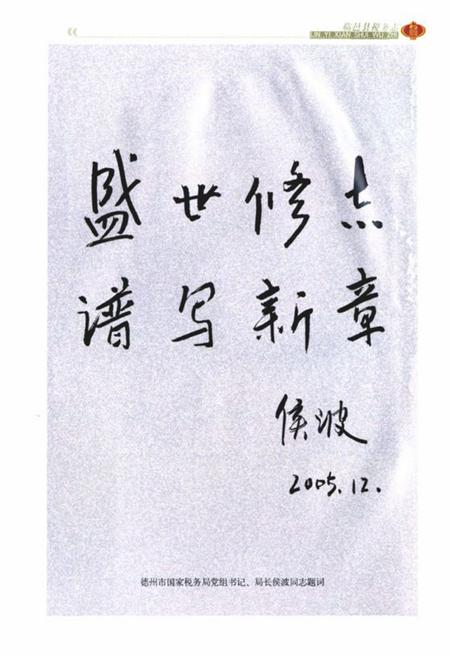 临邑县税务志
LIN YI XIAN SHUI WU ZHI
盛世修志
谱写新章
侯波
2005.12.
德州市国家税务局党组书记、局长侯波同志题词